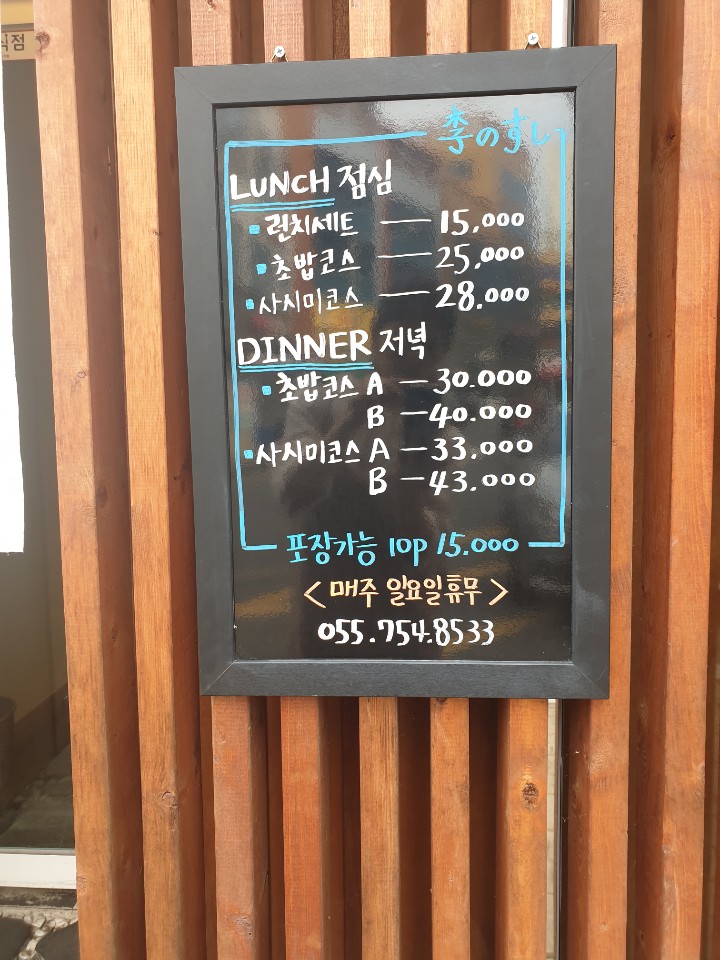 식점
李のすし
LUNCH 점심
런치세트 — 15,000
초밥코스 — 25,000
사시미코스 — 28.000
DINNER 저녁
초밥코스 A — 30.000
B — 40.000
사시미코스 A — 33.000
B — 43.000
포장가능 10p 15.000
<매주 일요일휴무>
055.754.8533